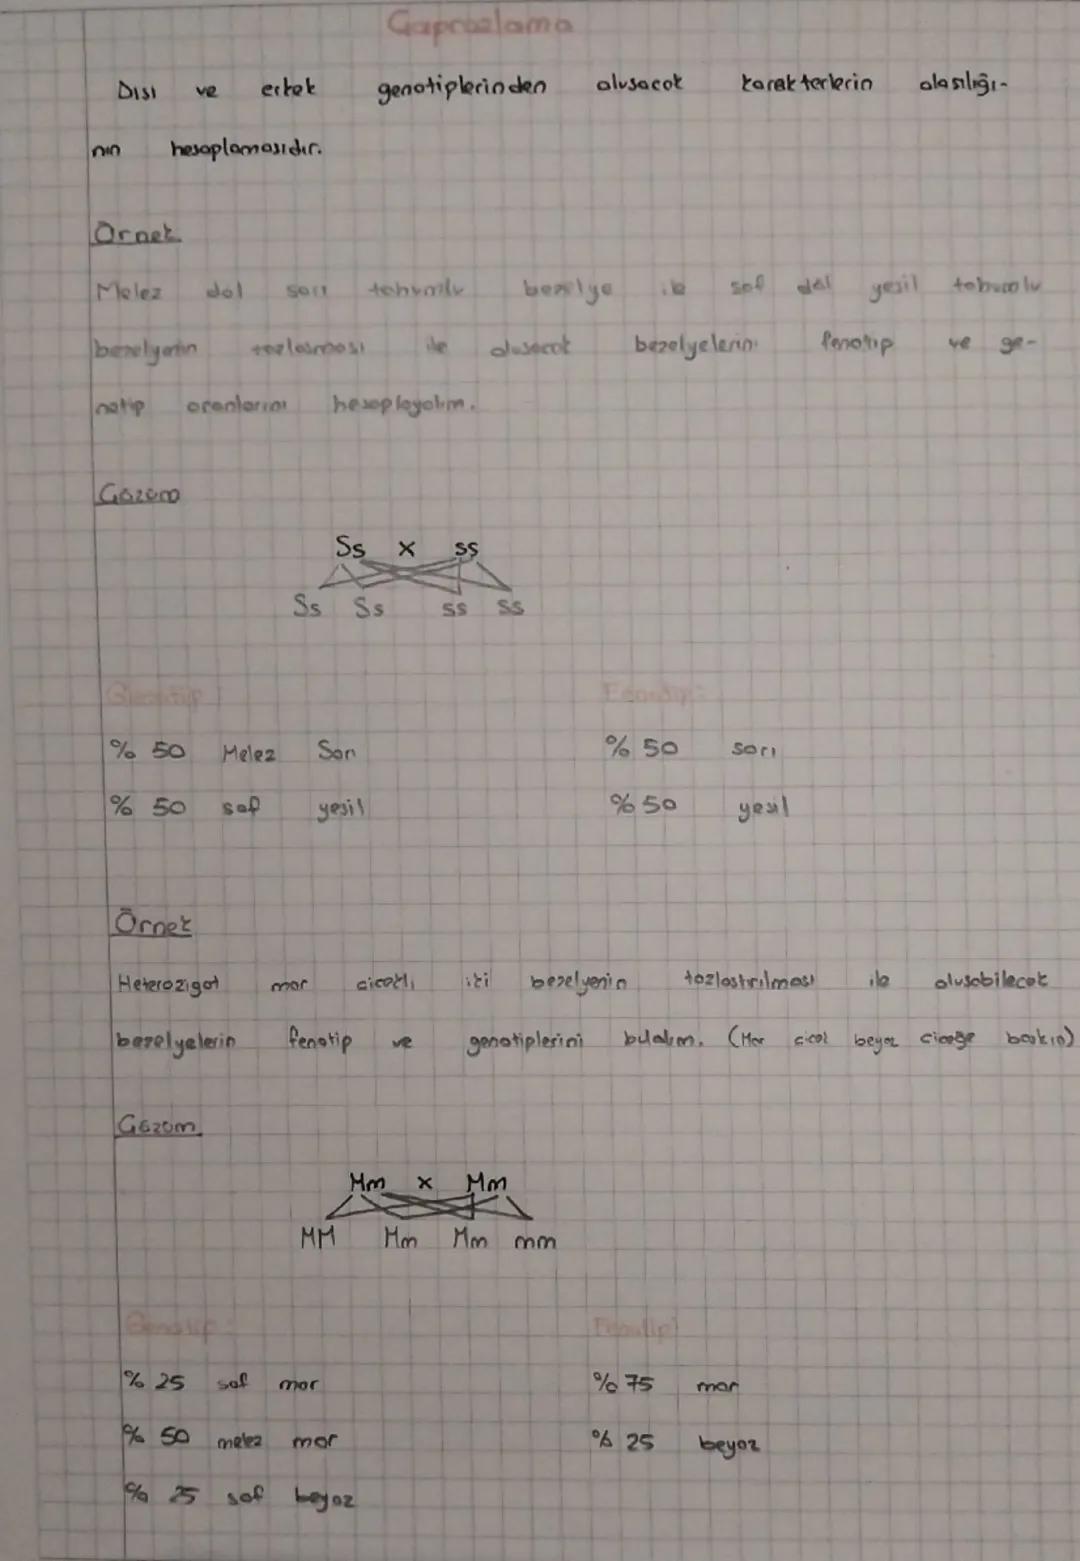 Çaprazlama
Dişi ve erkek genotiplerinden oluşacak karakterlerin olasılığı-
nın hesaplamasıdır.
Örnek
Melez döl sarı tohumlu bezelye ile saf döl yeşil tohumlu
bezelyenin tozlaşması ile oluşacak bezelyelerin fenotip ve ge-
notip oranlarını hesaplayalım.
Çözüm
Ss x ss
Ss Ss ss ss
Genotip: Fenotip:
% 50 Melez Sarı % 50 sarı
% 50 saf yeşil % 50 yeşil
Örnek
Heterozigot mor çiçekli iki bezelyenin tozlaştırılması ile oluşabilecek
bezelyelerin fenotip ve genotiplerini bulalım. (Mor çiçek beyaz çiçeğe baskın)
Çözüm
Mm x Mm
MM Mm Mm mm
Genotip: Fenotip:
% 25 saf mor % 75 mor
% 50 melez mor % 25 beyaz
% 25 saf beyaz